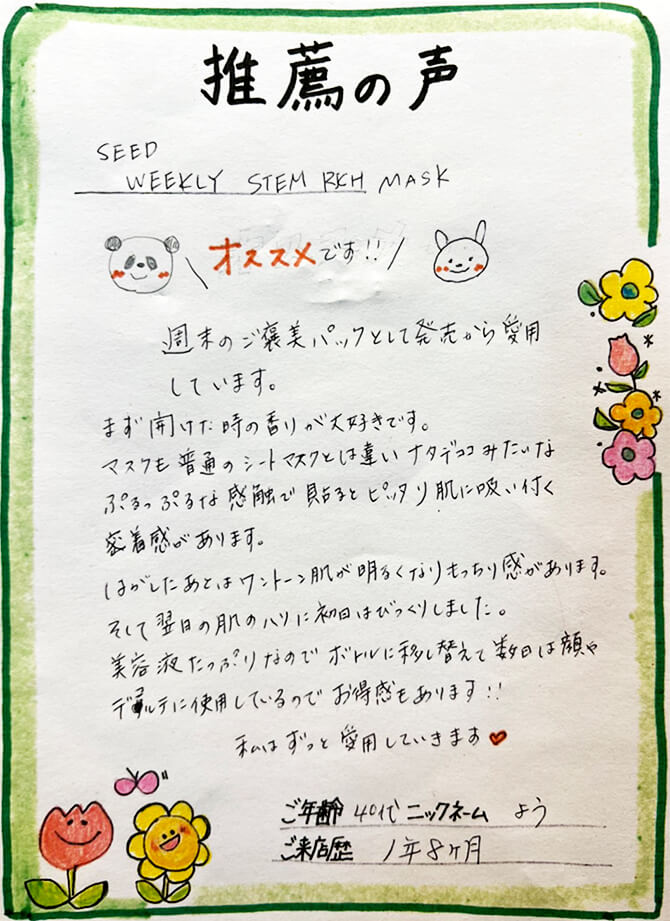 推薦の声
SEED
WEEKLY STEM RICH MASK
オススメです!!
週末のご褒美パックとして発売から愛用
しています。
まず開けた時の香りが大好きです。
マスクも普通のシートマスクとは違いナタデココみたいな
ぷるっぷるな感触で貼るとピッタリ肌に吸い付く
密着感があります。
はがしたあとはワントーン肌が明るくなりもっちり感があります。
そして翌日の肌のハリに初回はびっくりしました。
美容液たっぷりなのでボトルに移し替えて数日は顔や
デコルテに使用しているのでお得感もあります!!
私はずっと愛用していきます♥
ご年齢 40代 ニックネーム よう
ご来店歴 1年8ヶ月